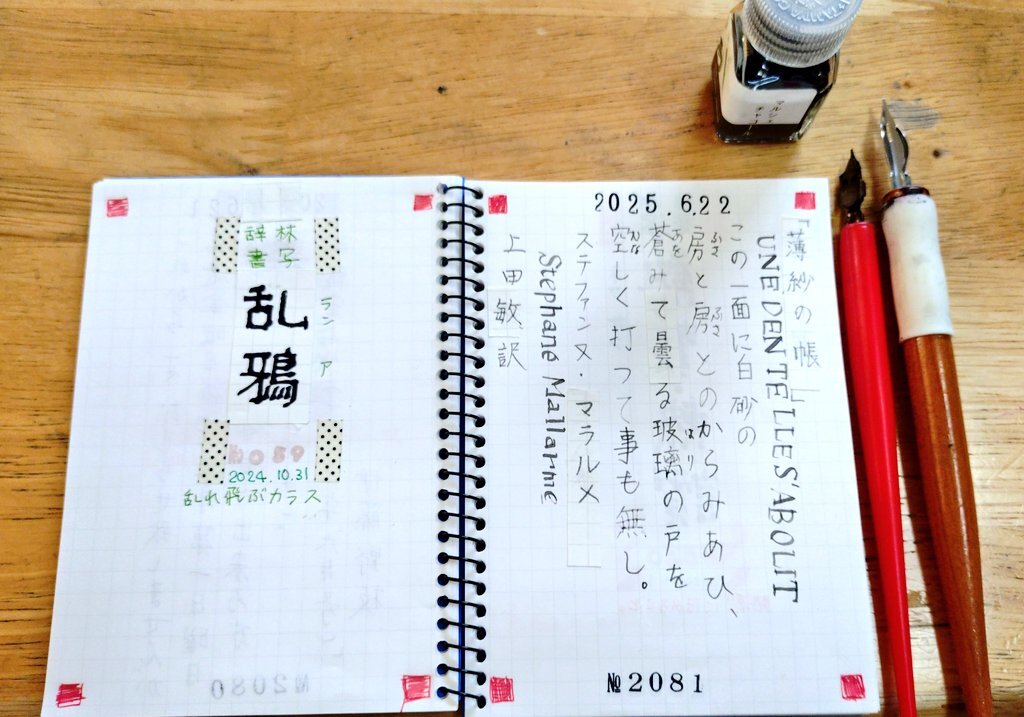 林写
辞書
乱鴉
ラン ア
2024.10.31
乱れ飛ぶカラス
2025.6.22
「薄紗の帳」
UNE DENTELLE S'ABOLIT
この一面に白砂の
房と房とのからみあひ、
ふさ ふさ
蒼みて曇る玻璃の戸を
あを はり
空しく打つて事も無し。
ステファンヌ・マラルメ
Stephane Mallarme
上田敏 訳
№2081